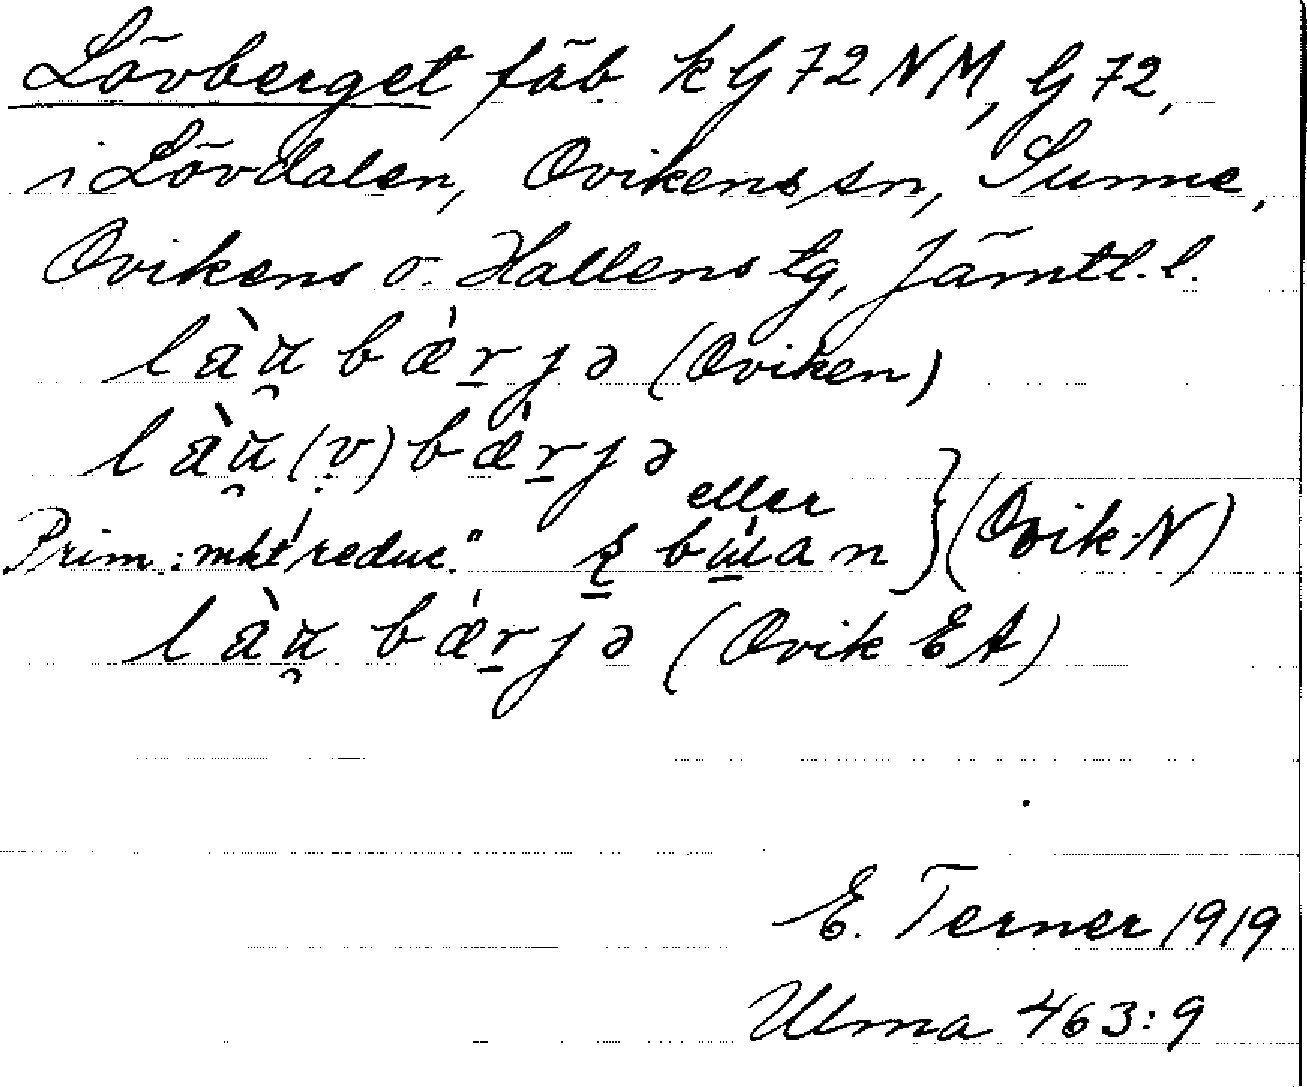 Lövberget fäb. k G 72 NM, G 72,
i Lövdalen, Ovikens sn, Sunne,
Ovikens o. Hallens tg, Jämtl. l.
l à u̯ b ǽ r̲ j ə (Oviken)
l à u̯ (v̥) b æ̀ r̲ j ə
eller
Prim.: "mkt reduc." b ɯ́ a n } (Ovik. N)
l à u̯ b ǽ r̲ j ə (Ovik EA)
E. Terner 1919
Ulma 463:9